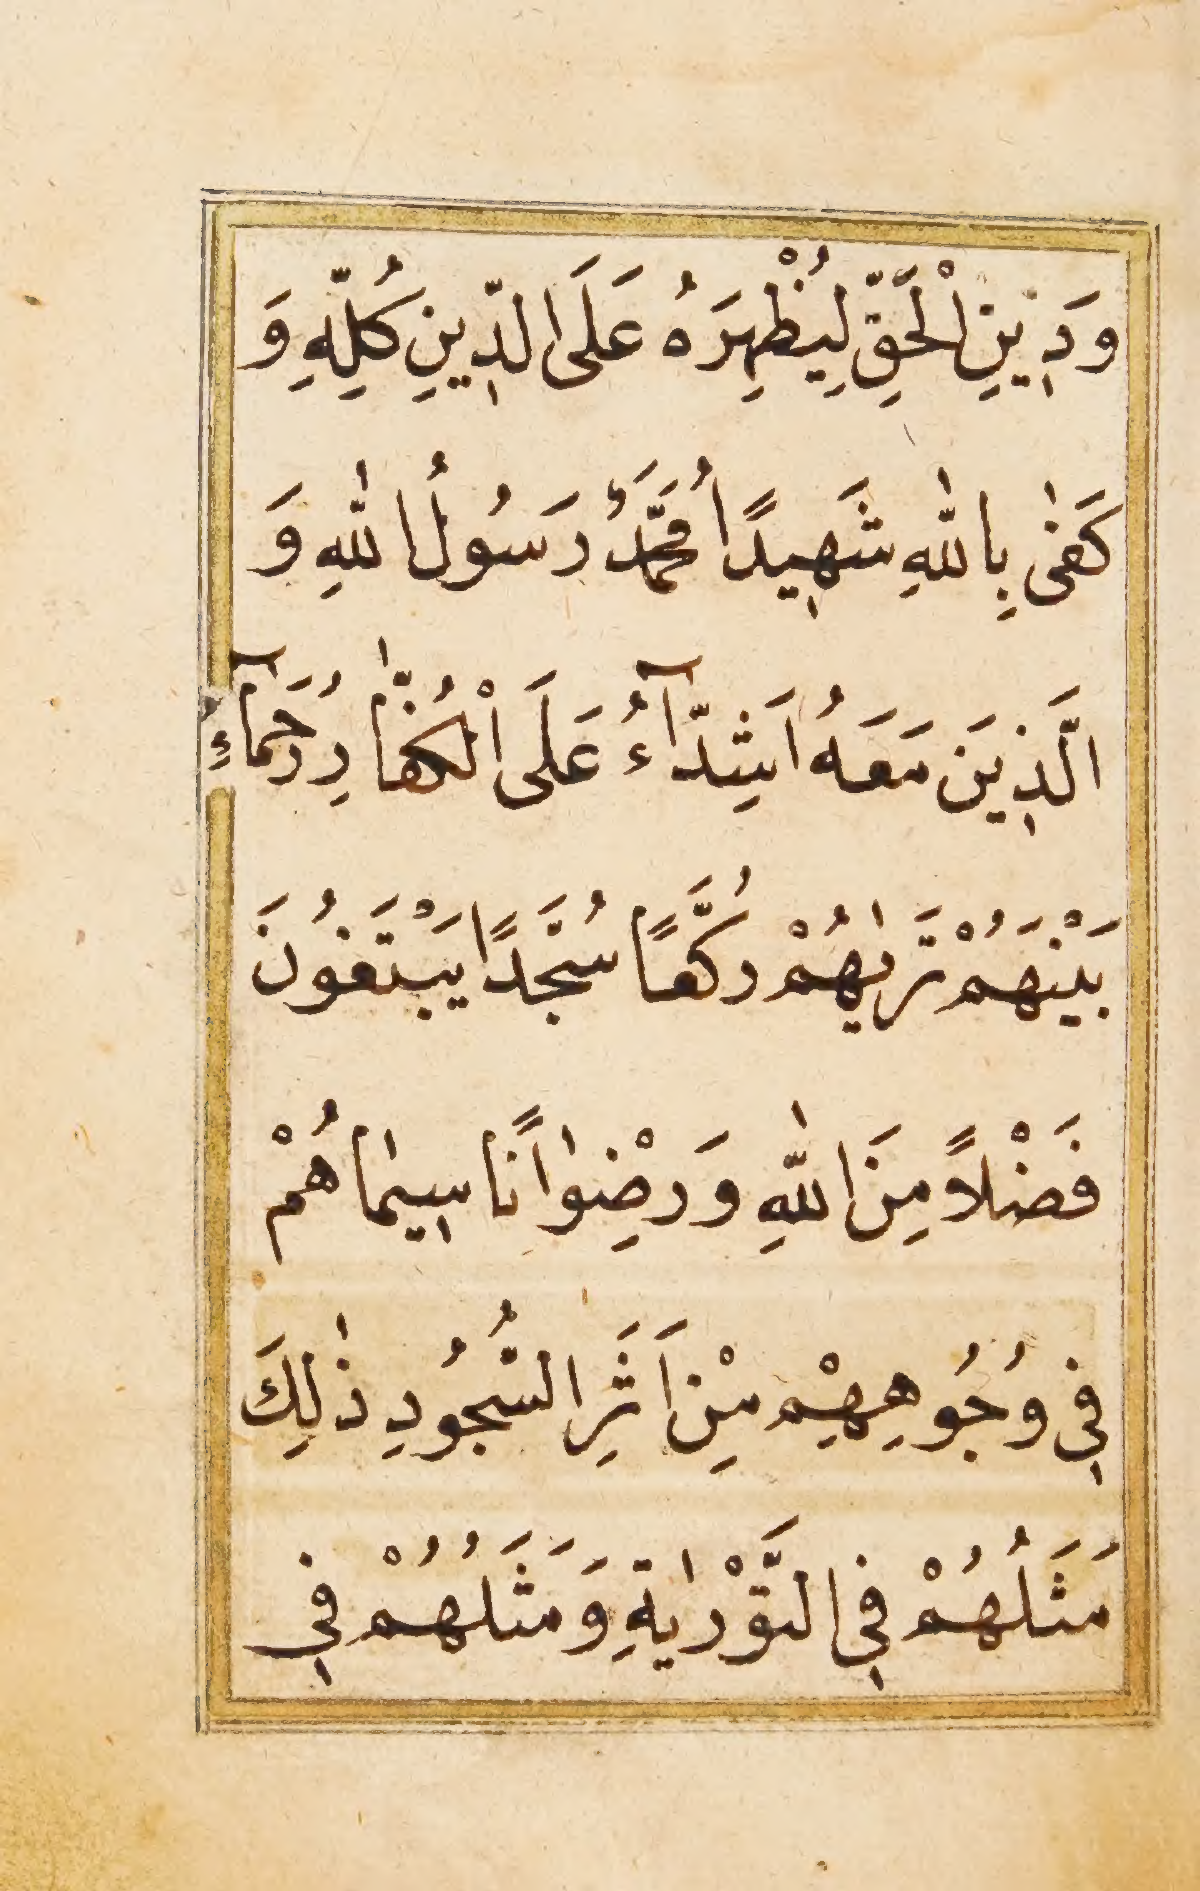 وَدٖينِ الْحَقِّ لِيُظْهِرَهُ عَلَى الدّٖينِ كُلِّهِ وَ
كَفٰى بِاللّٰهِ شَهٖيدًا مُحَمَّدٌ رَسُولُ اللّٰهِ وَ
الَّذٖينَ مَعَهُ اَشِدَّآءُ عَلَى الْكُفَّارِ رُحَمَآءِ
بَيْنَهُمْ تَرٰيهُمْ رُكَّعًا سُجَّدًا يَبْتَغُونَ
فَضْلًا مِنَ اللّٰهِ وَرِضْوانًا سٖيمٰاهُمْ
فٖى وُجُوهِهِمْ مِنْ اَثَرِ السُّجُودِ ذٰلِكَ
مَثَلُهُمْ فٖى التَّوْرٰيةِ وَمَثَلُهُمْ فٖى